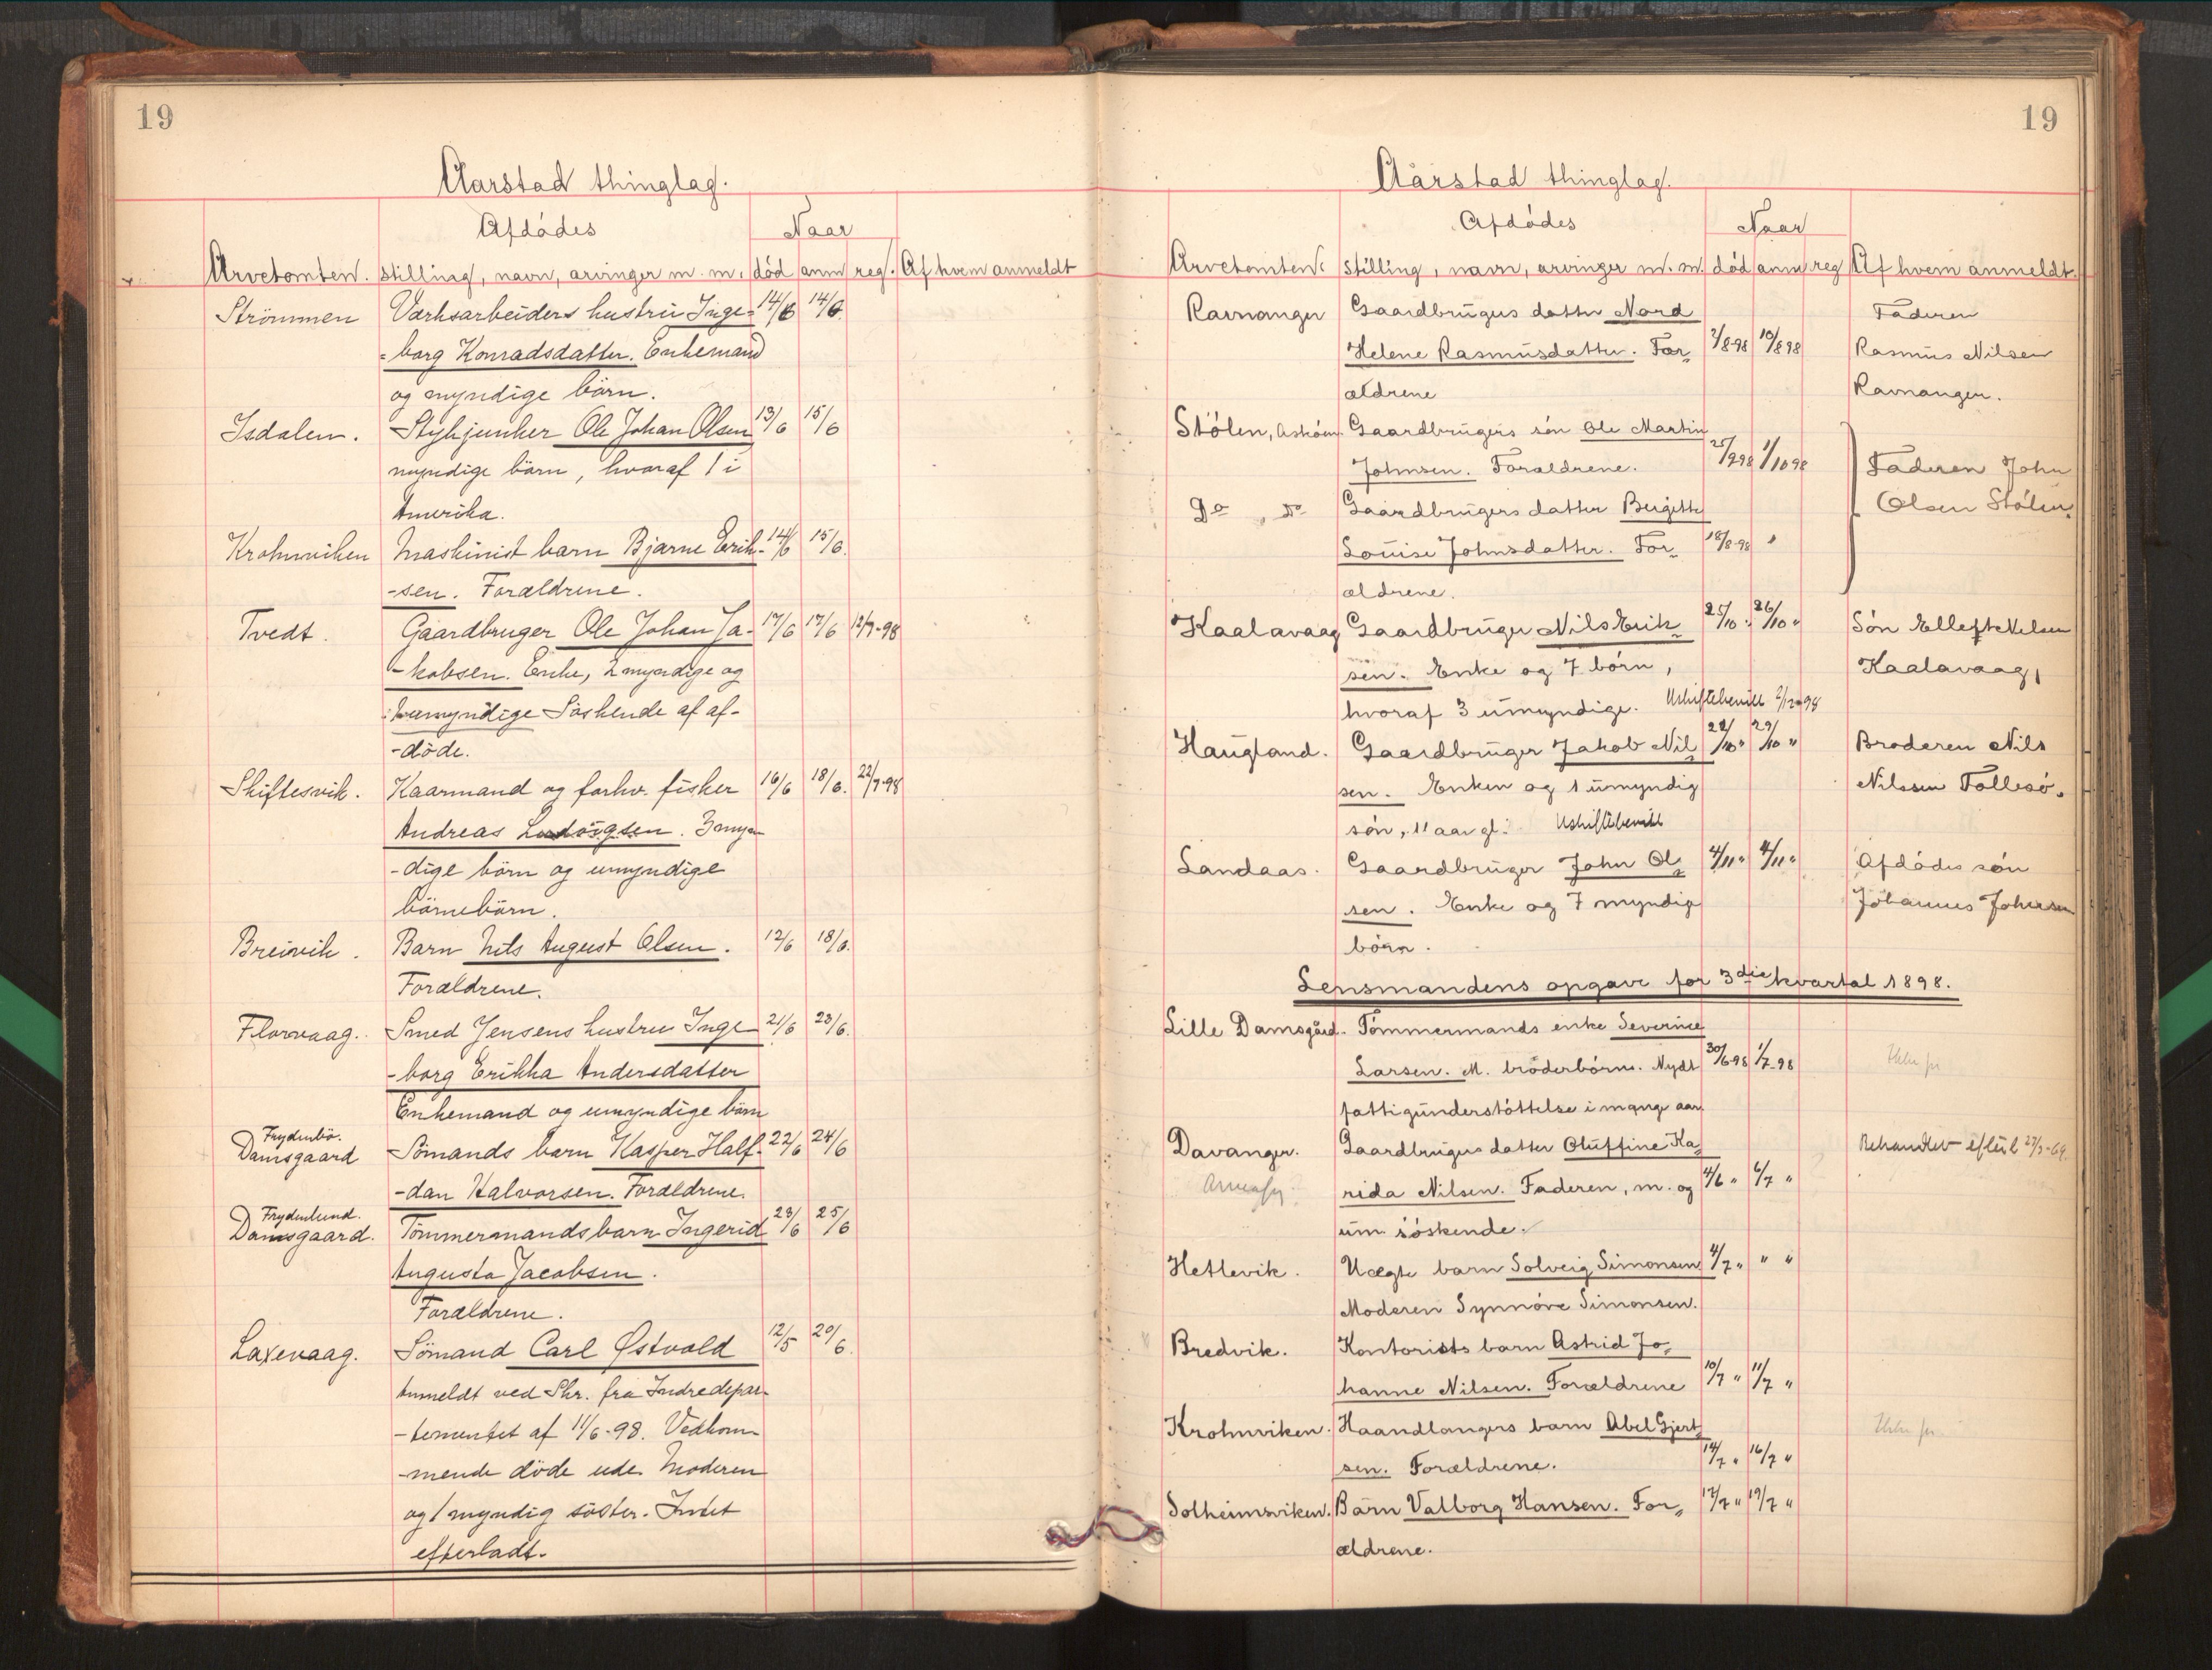 19
Aarstad thinglag.
Afdödes Naar
Arvetomten. stilling, navn, arvinger m. m. död anm reg. Af hvem anmeldt
Strömmen Værksarbeiders hustru Inge- 14/6 14/6.
-borg Konradsdatter. Enkemand
og myndige börn.
Isdalen. Stykjunker Ole Johan Olsen 13/6 15/6
myndige börn, hvoraf 1 i
Amerika.
Krohnviken Maskinist barn Bjarne Erik- 14/6 15/6.
-sen. Forældrene.
Tvedt. Gaardbruger Ole Johan Ja- 17/6 17/6 12/9-98
-kobsen. Enke, 2 myndige og
umyndige Söskende af af-
-döde.
Skiftesvik. Kaarmand og forhv. fisker 16/6 18/6. 22/9-98
Andreas Ludvigsen. 3 myn-
-dige börn og umyndige
börnebörn.
Breivik. Barn Nils August Olsen. 12/6 18/6.
Forældrene.
Florvaag. Smed Jensens hustru Inge- 21/6 23/6.
-borg Erikka Andersdatter
Enkemand og umyndige börn
Frydenbö.
Damsgaard Sömands barn Kasper Half- 22/6 24/6
-dan Halvorsen. Forældrene.
Frydenlund.
Damsgaard. Tömmermands barn Ingerid 23/6 25/6
Augusta Jacobsen.
Forældrene.
Laxevaag. Sömand Carl Østvold 12/5 20/6.
Anmeldt ved Skr. fra Indredepar-
-tementet af 11/6-98. Vedkom-
-mende döde ude. Moderen
og 1 myndig söster. Intet
efterladt.
19
Aarstad thinglag.
Afdödes Naar
Arvetomten. stilling, navn, arvinger m. m. död anm reg Af hvem anmeldt.
Ravnanger Gaardbrugers datter Nord Faderen
Helene Rasmusdatter. For- 7/8-98 10/8 98 Rasmus Nilsen
ældrene Ravnanger.
Stölen, Asköen. Gaardbrugers sön Ole Martin
Johnsen. Forældrene. 25/9 98 1/10 98 Faderen John
Do, do Gaardbrugers datter Bergitte Olsen Stölen.
Louise Johnsdatter. For- 18/8-98 "
ældrene.
Kaalavaag Gaardbruger Nils Erik- 25/10 " 26/10 " Sön Elleft Nilsen
sen. Enke og 7 börn, Kaalavaag,
hvoraf 3 umyndige. Uskiftebevill 2/12 98
Haugland. Gaardbruger Jakob Nil- 22/10 " 29/10 " Broderen Nils
sen. Enken og 1 umyndig Nilssen Follesö.
sön, 11 aar gl. Uskiftebevill
Landaas. Gaardbruger John Ol- 4/11 " 4/11 " Afdödes sön
sen. Enke og 7 myndig Johannes Johnsen
börn.
Lensmandens opgave for 3die kvartal 1898.
Lille Damsgård. Tömmermands enke Severine
Larsen. M. bröderbörn. Nydt 30/6 98 1/7-98
fattigunderstöttelse i mange aar.
Davanger. Gaardbrugers datter Oluffine Ka- Behandlet
rida Nilsen. Faderen, m. og 4/6 " 6/7 "
um. söskende.
Hetlevik. Uægte barn Solveig Simonsen 4/7 " " "
Moderen Synnöve Simonsen.
Bredvik. Kontorists barn Astrid Jo-
hanne Nilsen. Forældrene 10/7 " 11/7 "
Krohnviken. Haandlangers barn Abel Gjert-
sen. Forældrene. 14/7 " 16/7 "
Solheimsviken. Barn Valborg Hansen. For- 17/7 " 19/7 "
ældrene.